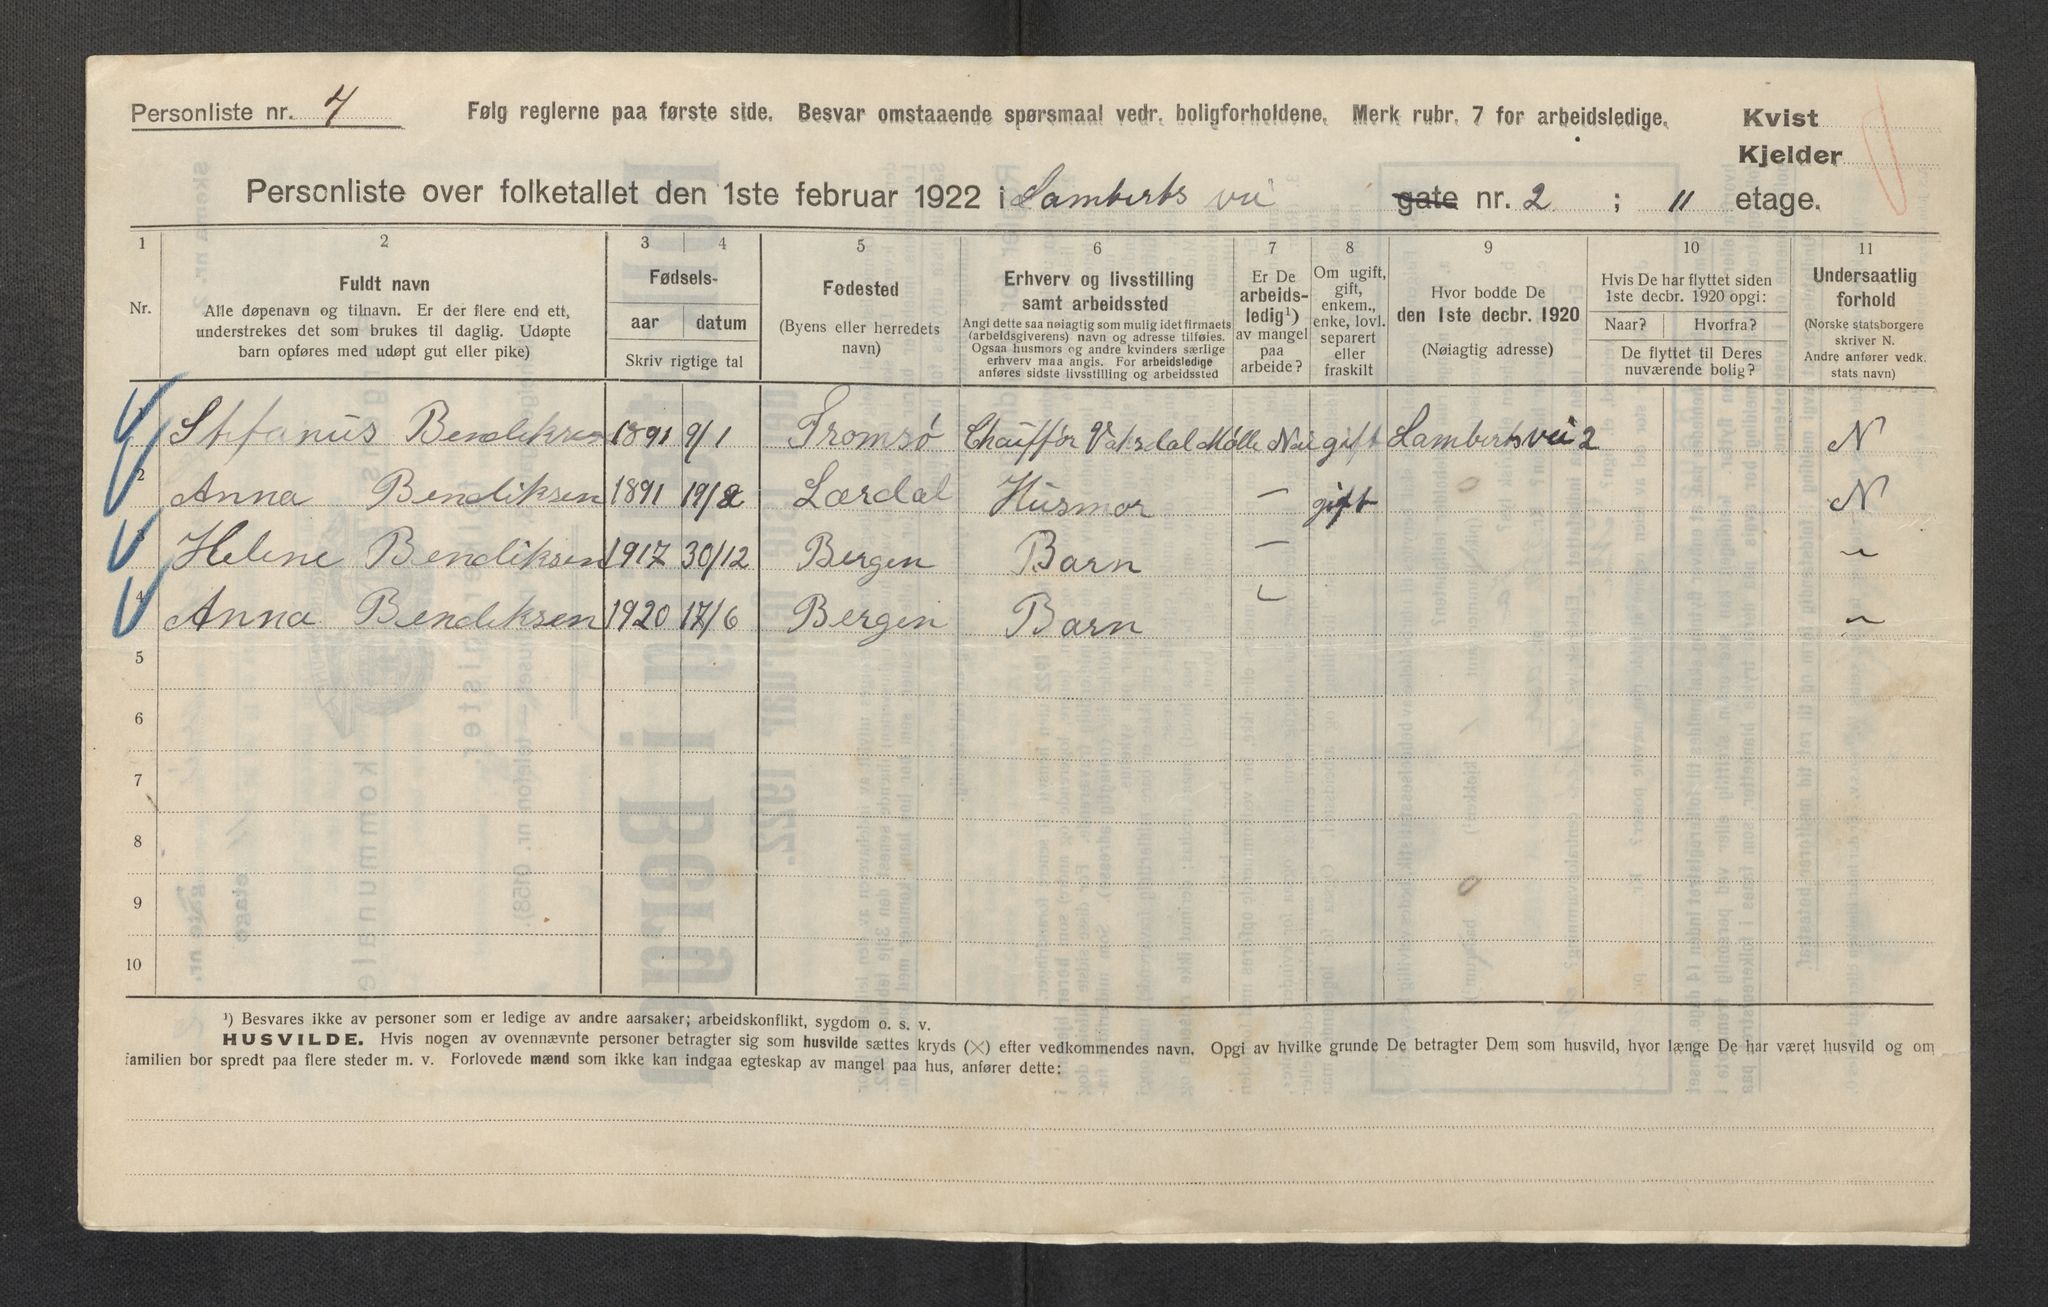 Personliste nr. 7 Følg reglerne paa første side. Besvar omstaaende spørsmaal vedr. boligforholdene. Merk rubr. 7 for arbeidsledige. Kvist
Kjelder
Personliste over folketallet den 1ste februar 1922 i Lamberts vei gate nr. 2 ; 11 etage.
1 2 3 4 5 6 7 8 9 10 11
Nr.
Fuldt navn
Alle døpenavn og tilnavn. Er der flere end ett,
understrekes det som brukes til daglig. Udøpte
barn opføres med udøpt gut eller pike)
Fødsels-
aar datum
Skriv rigtige tal
Fødested
(Byens eller herredets
navn)
Erhverv og livsstilling
samt arbeidssted
Angi dette saa nøiagtig som mulig idet firmaets
(arbeidsgiverens) navn og adresse tilføies.
Ogsaa husmors og andre kvinders særlige
erhverv maa angis. For arbeidsledige
anføres sidste livsstilling og arbeidssted
Er De
arbeids-
ledig¹)
av mangel
paa
arbeide?
Om ugift,
gift,
enkem.,
enke, lovl.
separert
eller
fraskilt
Hvor bodde De
den 1ste decbr. 1920
(Nøiagtig adresse)
Hvis De har flyttet siden
1ste decbr. 1920 opgi:
Naar? Hvorfra?
De flyttet til Deres
nuværende bolig?
Undersaatlig
forhold
(Norske statsborgere
skriver N.
Andre anfører vedk.
stats navn)
Stefanus Bendiksen 1891 9/1 Tromsø Chauffør Vaksdal Mølle Nei gift Lamberts vei 2 N
2 Anna Bendiksen 1891 19/2 Lærdal Husmor — gift N
Helene Bendiksen 1917 30/12 Bergen Barn — "
4 Anna Bendiksen 1920 17/6 Bergen Barn — "
5
6
7
8
9
10
¹) Besvares ikke av personer som er ledige av andre aarsaker; arbeidskonflikt, sygdom o. s. v.
HUSVILDE. Hvis nogen av ovennævnte personer betragter sig som husvilde sættes kryds (×) efter vedkommendes navn. Opgi av hvilke grunde De betragter Dem som husvild, hvor længe De har været husvild og om
familien bor spredt paa flere steder m. v. Forlovede mænd som ikke kan indgaa egteskap av mangel paa hus, anfører dette: